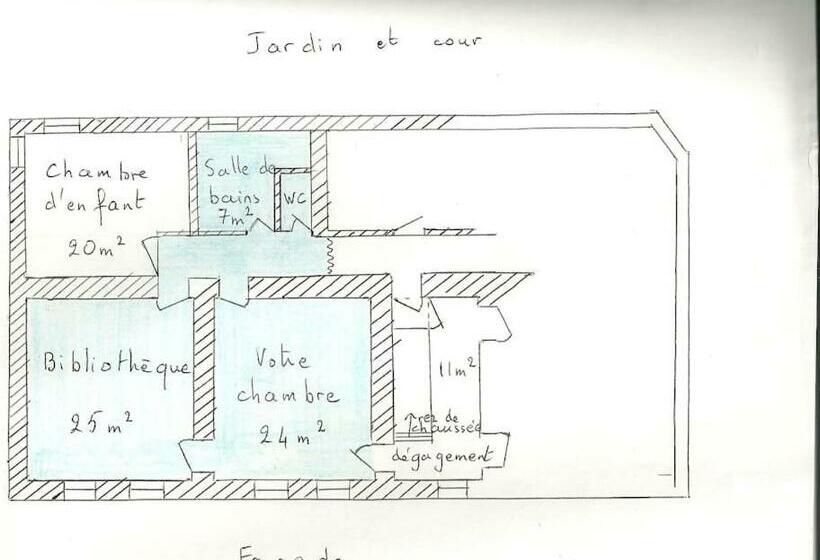 Jardin et cour
Chambre
d'enfant
20 m²
Salle de
bains
7m²
WC
Bibliothèque
25 m²
Votre
chambre
24 m²
11m²
rez de
chaussée
dégagement